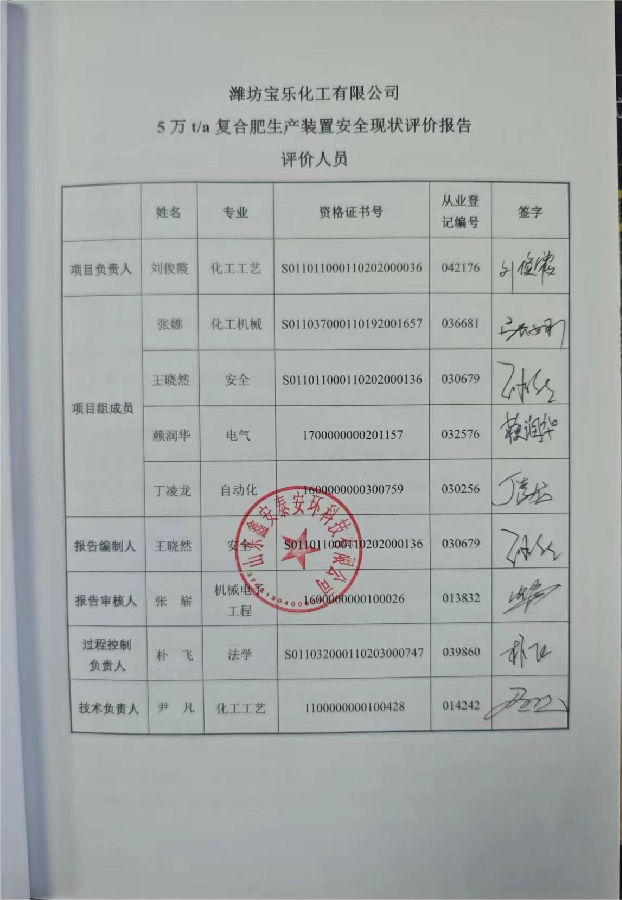 潍坊宝乐化工有限公司
5万 t/a 复合肥生产装置安全现状评价报告
评价人员
姓名 专业 资格证书号 从业登记编号 签字
项目负责人 刘俊霞 化工工艺 S011011000110202000036 042176 刘俊霞
项目组成员
张娜 化工机械 S011037000110192001657 036681
王晓然 安全 S011011000110202000136 030679
赖润华 电气 1700000000201157 032576 赖润华
丁凌龙 自动化 1600000000300759 030256
报告编制人 王晓然 安全 S011011000110202000136 030679
报告审核人 张崭 机械电子工程 1600000000100026 013832
过程控制负责人 朴飞 法学 S011032000110203000747 039860 朴飞
技术负责人 尹凡 化工工艺 1100000000100428 014242
山东鑫安泰安环科技有限公司